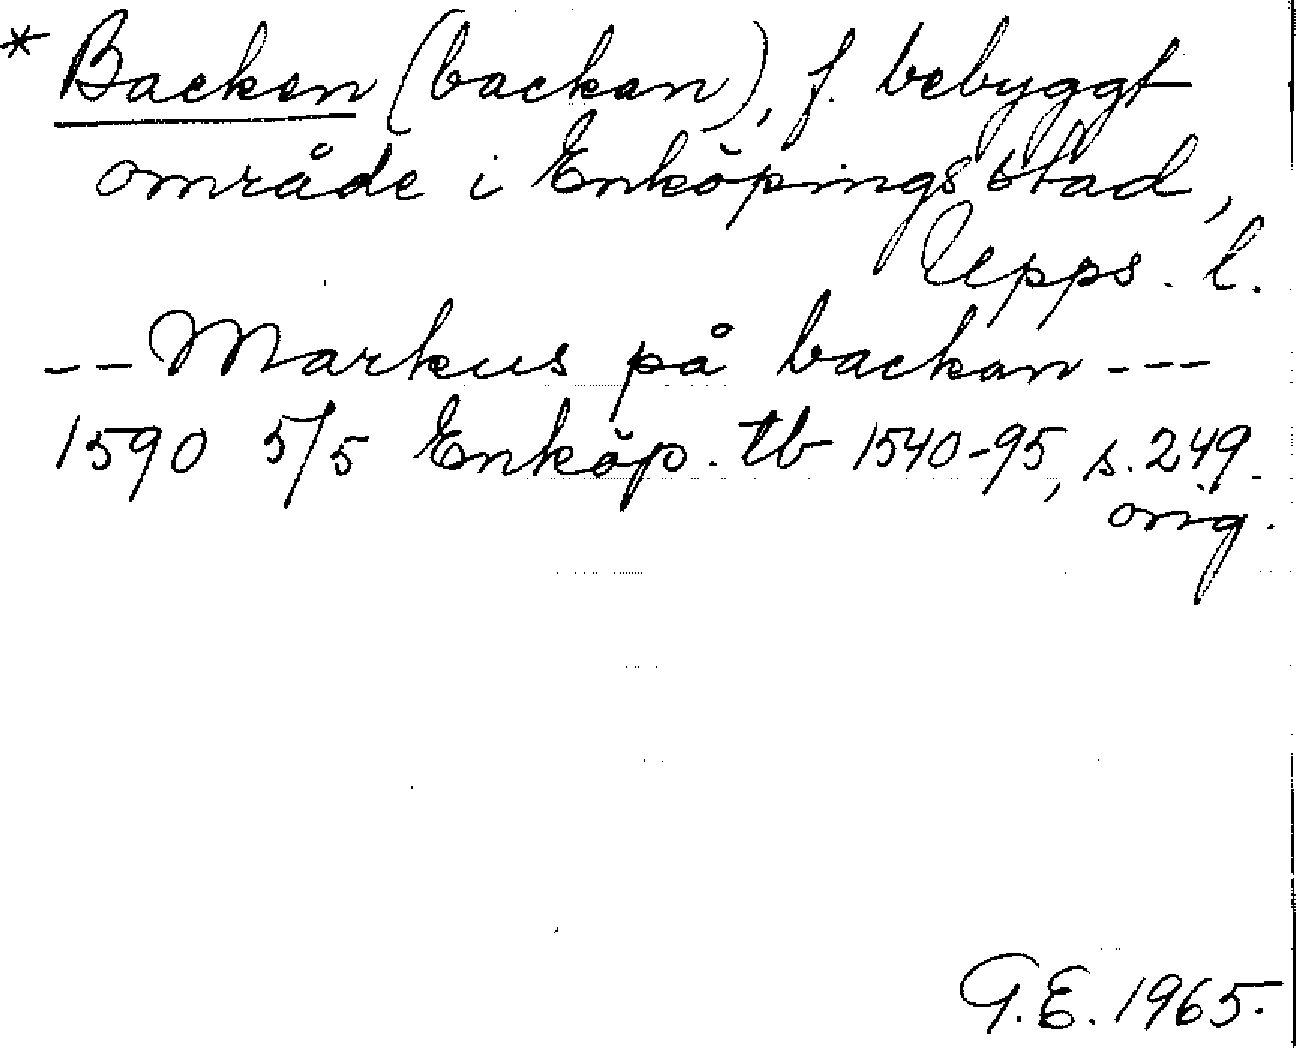 * Backen (backan), f. bebyggt
område i Enköpings stad,
Upps. l.
-- Markus på backan ---
1590 5/5 Enköp. tb 1540-95, s. 249.
orig.
G.E. 1965.